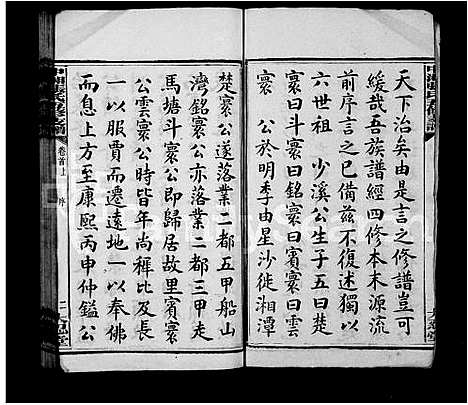 天下治矣由是言之修譜豈可
緩哉吾族譜經四修本末源流
前序言之已備茲不復述獨以
六世祖 少溪公生子五曰楚
寰曰斗寰曰銘寰曰賓寰曰雲
寰 公於明季由星沙徙湘潭
楚寰公遂落業二都五甲船山
灣銘寰公亦落業二都三甲走
馬塘斗寰公即歸居故里賓寰
公雲寰公時皆年尚穉比及長
一以服賈而遷遠地一以奉佛
而息上方至康熙丙申仲鎰公
卷首上 序 二